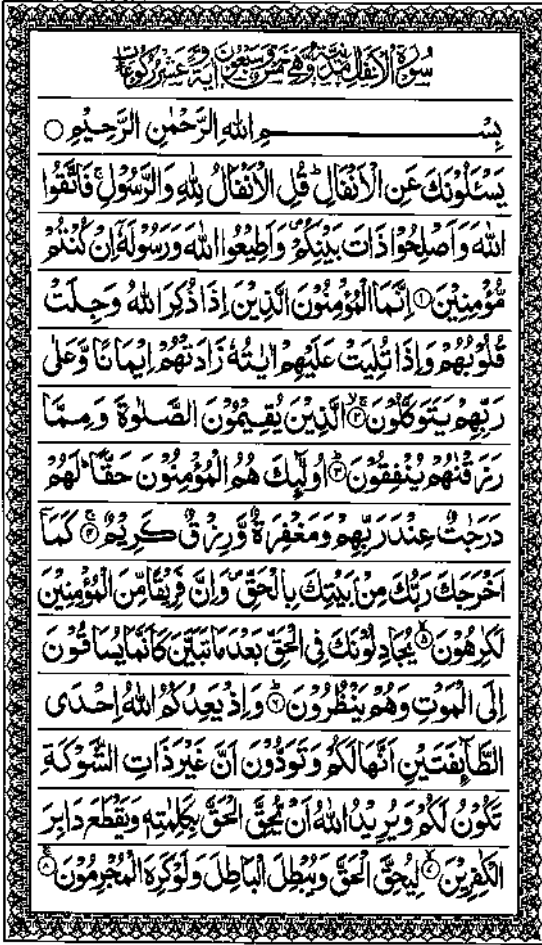 سُوْرَةُ الْاَنْفَالِ مَدَنِيَّةٌ وَّهِيَ خَمْسٌ وَّسَبْعُوْنَ اٰيَةً وَّعَشْرُ رُكُوْعَاتٍ
بِسْمِ اللّٰهِ الرَّحْمٰنِ الرَّحِيْمِ ○
يَسْـَٔلُوْنَكَ عَنِ الْاَنْفَالِ ؕ قُلِ الْاَنْفَالُ لِلّٰهِ وَالرَّسُوْلِ ۚ فَاتَّقُوا
اللّٰهَ وَاَصْلِحُوْا ذَاتَ بَيْنِكُمْ ۪ وَاَطِيْعُوا اللّٰهَ وَرَسُوْلَهٗۤ اِنْ كُنْتُمْ
مُّؤْمِنِيْنَ ۝۱ اِنَّمَا الْمُؤْمِنُوْنَ الَّذِيْنَ اِذَا ذُكِرَ اللّٰهُ وَجِلَتْ
قُلُوْبُهُمْ وَاِذَا تُلِيَتْ عَلَيْهِمْ اٰيٰتُهٗ زَادَتْهُمْ اِيْمَانًا وَّعَلٰى
رَبِّهِمْ يَتَوَكَّلُوْنَ ۝۲ۚۖ الَّذِيْنَ يُقِيْمُوْنَ الصَّلٰوةَ وَمِمَّا
رَزَقْنٰهُمْ يُنْفِقُوْنَ ۝۳ؕ اُولٰٓئِكَ هُمُ الْمُؤْمِنُوْنَ حَقًّا ؕ لَهُمْ
دَرَجٰتٌ عِنْدَ رَبِّهِمْ وَمَغْفِرَةٌ وَّرِزْقٌ كَرِيْمٌ ۝۴ۚ كَمَاۤ
اَخْرَجَكَ رَبُّكَ مِنْۢ بَيْتِكَ بِالْحَقِّ ۪ وَاِنَّ فَرِيْقًا مِّنَ الْمُؤْمِنِيْنَ
لَكٰرِهُوْنَ ۝۵ۙ يُجَادِلُوْنَكَ فِى الْحَقِّ بَعْدَ مَا تَبَيَّنَ كَاَنَّمَا يُسَاقُوْنَ
اِلَى الْمَوْتِ وَهُمْ يَنْظُرُوْنَ ۝۶ؕ وَاِذْ يَعِدُكُمُ اللّٰهُ اِحْدَى
الطَّآئِفَتَيْنِ اَنَّهَا لَكُمْ وَتَوَدُّوْنَ اَنَّ غَيْرَ ذَاتِ الشَّوْكَةِ
تَكُوْنُ لَكُمْ وَيُرِيْدُ اللّٰهُ اَنْ يُّحِقَّ الْحَقَّ بِكَلِمٰتِهٖ وَيَقْطَعَ دَابِرَ
الْكٰفِرِيْنَ ۝۷ۙ لِيُحِقَّ الْحَقَّ وَيُبْطِلَ الْبَاطِلَ وَلَوْ كَرِهَ الْمُجْرِمُوْنَ ۝۸ۚ